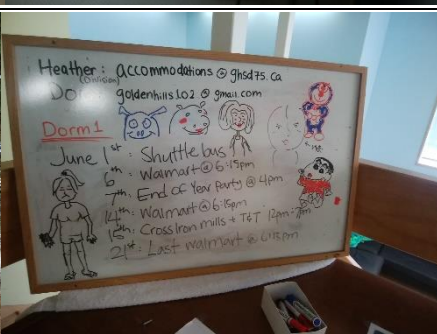 Heather: accommodations@ghsd75.ca
(Division)
goldenhills102@gmail.com
Dorm1
June 1st: Shuttle bus
6th: Walmart @ 6:15pm
7th: End of Year Party @ 4pm
14th: Walmart @ 6:15pm
15th: CrossIron mills + T&T 12pm-
21st: Last Walmart @ 6:15pm